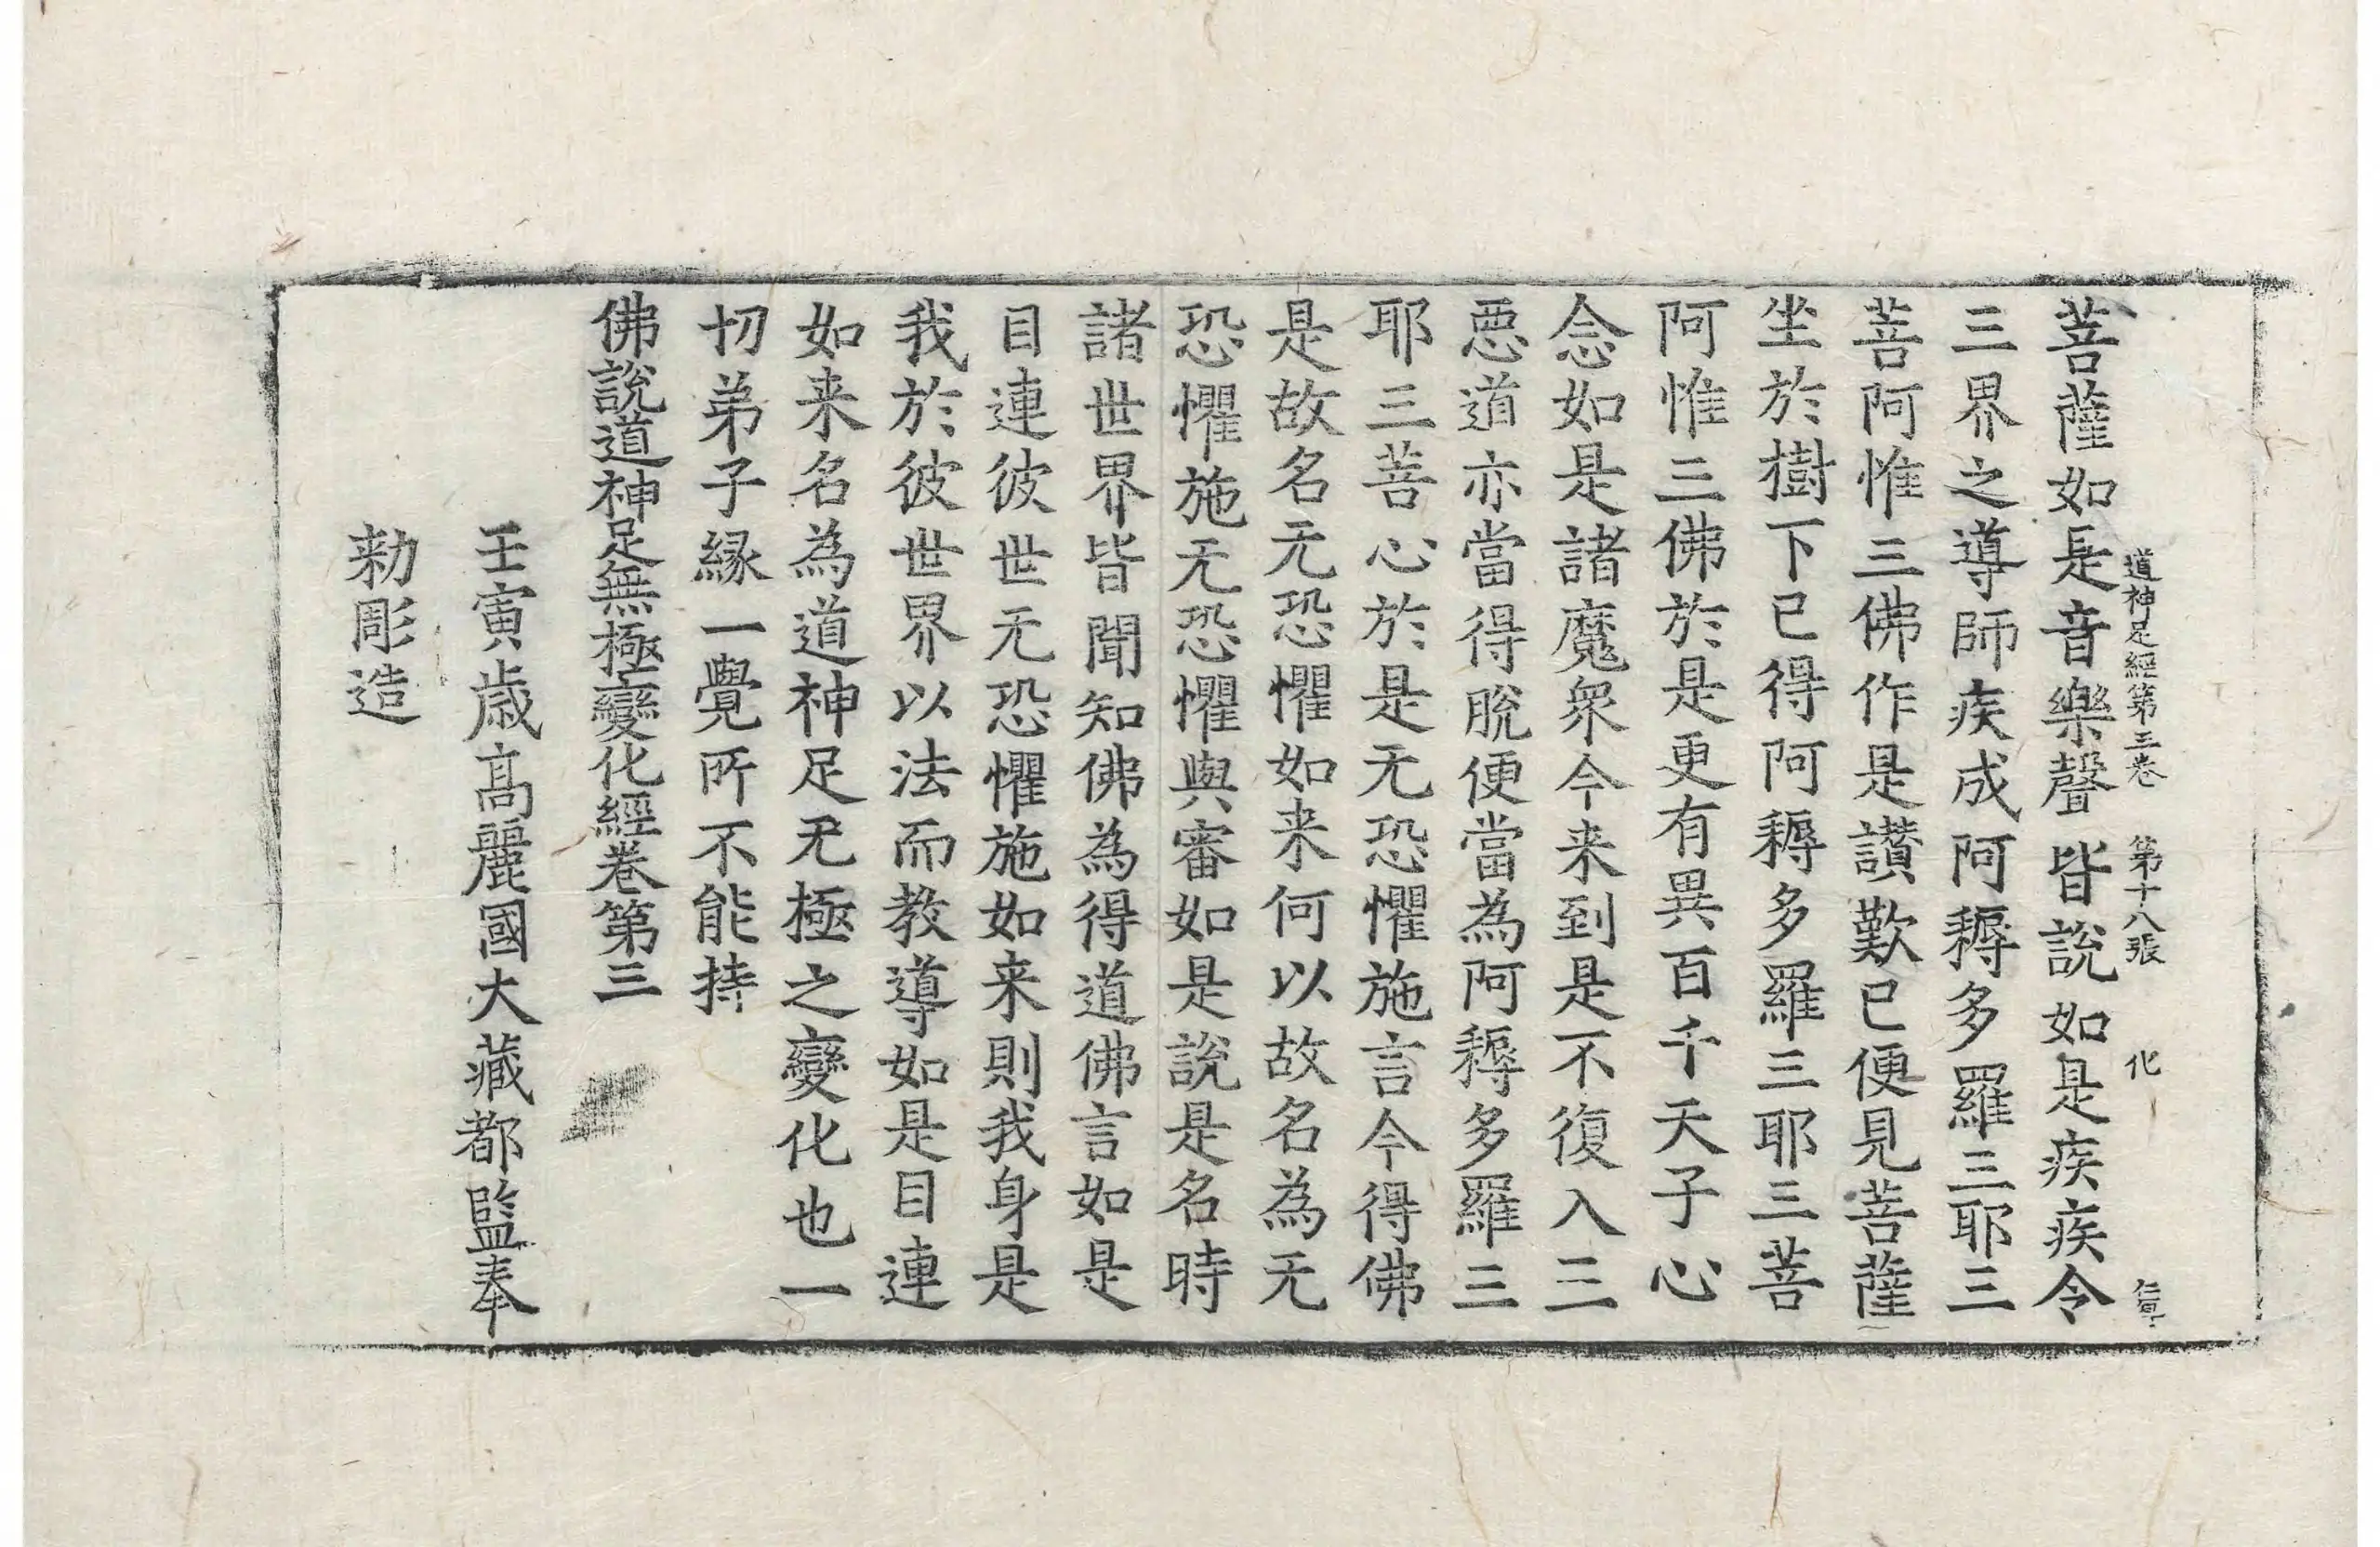 道神足經第三卷　第十八張　化　仁
菩薩如是音樂聲皆說如是疾疾令
三界之導師疾成阿耨多羅三耶三
菩阿惟三佛作是讃歎已便見菩薩
坐於樹下已得阿耨多羅三耶三菩
阿惟三佛於是更有異百千天子心
念如是諸魔衆今来到是不復入三
惡道亦當得脫便當為阿耨多羅三
耶三菩心於是无恐懼施言今得佛
是故名无恐懼如来何以故名為无
恐懼施无恐懼與審如是說是名時
諸世界皆聞知佛為得道佛言如是
目連彼世无恐懼施如来則我身是
我於彼世界以法而教導如是目連
如来名為道神足无極之變化也一
切弟子緣一覺所不能持
佛說道神足無極變化經卷第三
壬寅歳髙麗國大藏都監奉
勑彫造